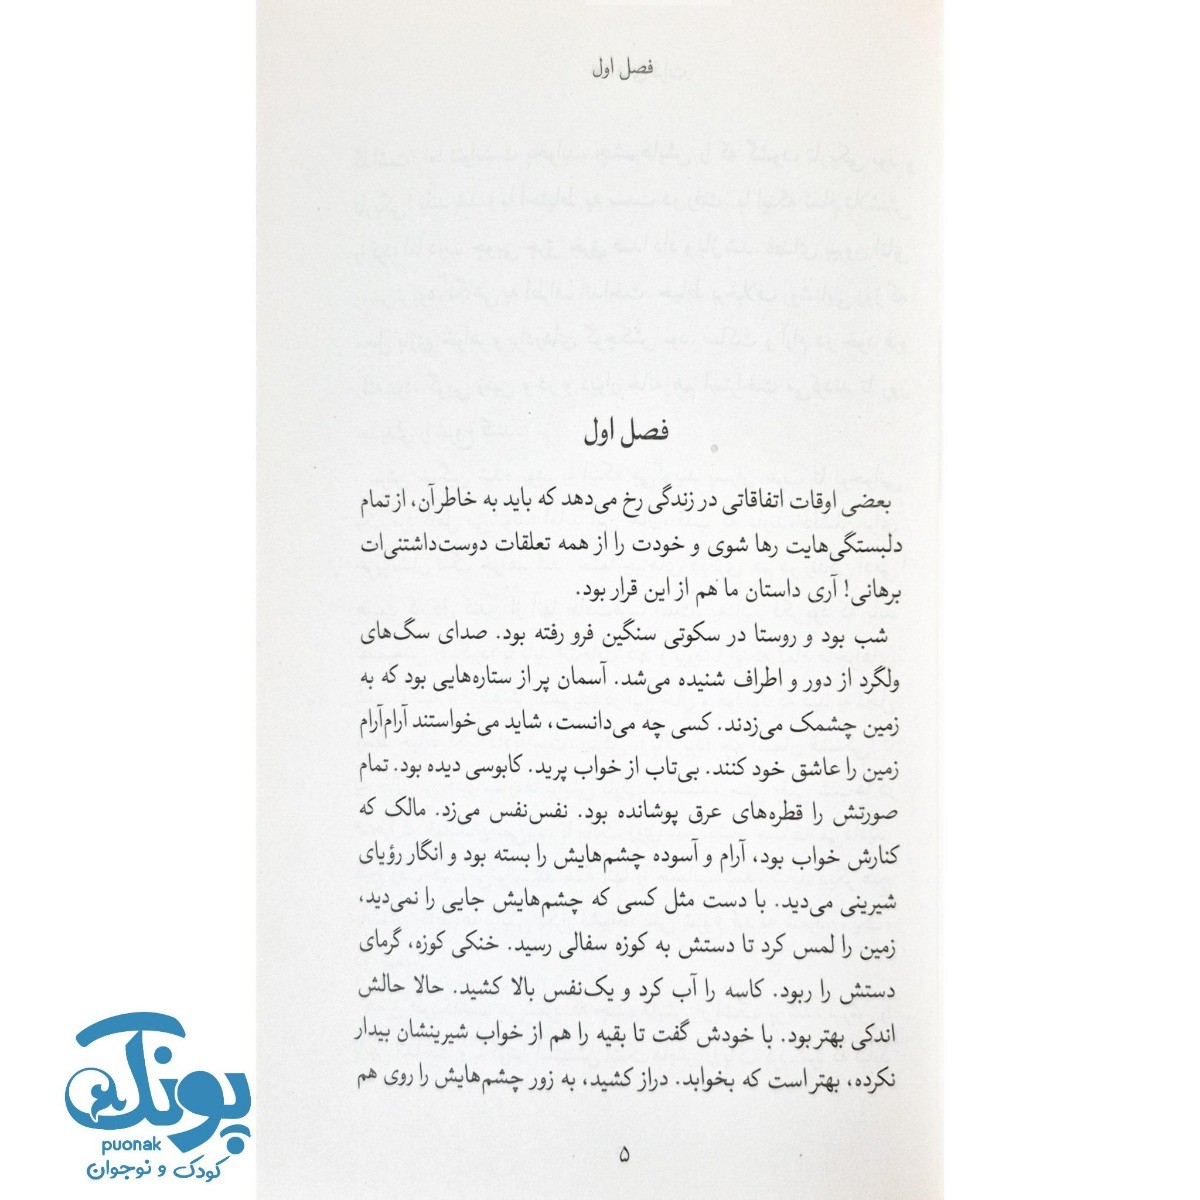 فصل اول
فصل اول
بعضی اوقات اتفاقاتی در زندگی رخ می‌دهد که باید به خاطر آن، از تمام
دلبستگی‌هایت رها شوی و خودت را از همه تعلقات دوست‌داشتنی‌ات
برهانی! آری داستان ما هم از این قرار بود.
شب بود و روستا در سکوتی سنگین فرو رفته بود. صدای سگ‌های
ولگرد از دور و اطراف شنیده می‌شد. آسمان پر از ستاره‌هایی بود که به
زمین چشمک می‌زدند. کسی چه می‌دانست، شاید می‌خواستند آرام‌آرام
زمین را عاشق خود کنند. بی‌تاب از خواب پرید. کابوسی دیده بود. تمام
صورتش را قطره‌های عرق پوشانده بود. نفس‌نفس می‌زد. مالک که
کنارش خواب بود، آرام و آسوده چشم‌هایش را بسته بود و انگار رؤیای
شیرینی می‌دید. با دست مثل کسی که چشم‌هایش جایی را نمی‌دید،
زمین را لمس کرد تا دستش به کوزه سفالی رسید. خنکی کوزه، گرمای
دستش را ربود. کاسه را آب کرد و یک‌نفس بالا کشید. حالا حالش
اندکی بهتر بود. با خودش گفت تا بقیه را هم از خواب شیرینشان بیدار
نکرده، بهتر است که بخوابد. دراز کشید، به زور چشم‌هایش را روی هم
۵
پونک
puonak
کودک و نوجوان